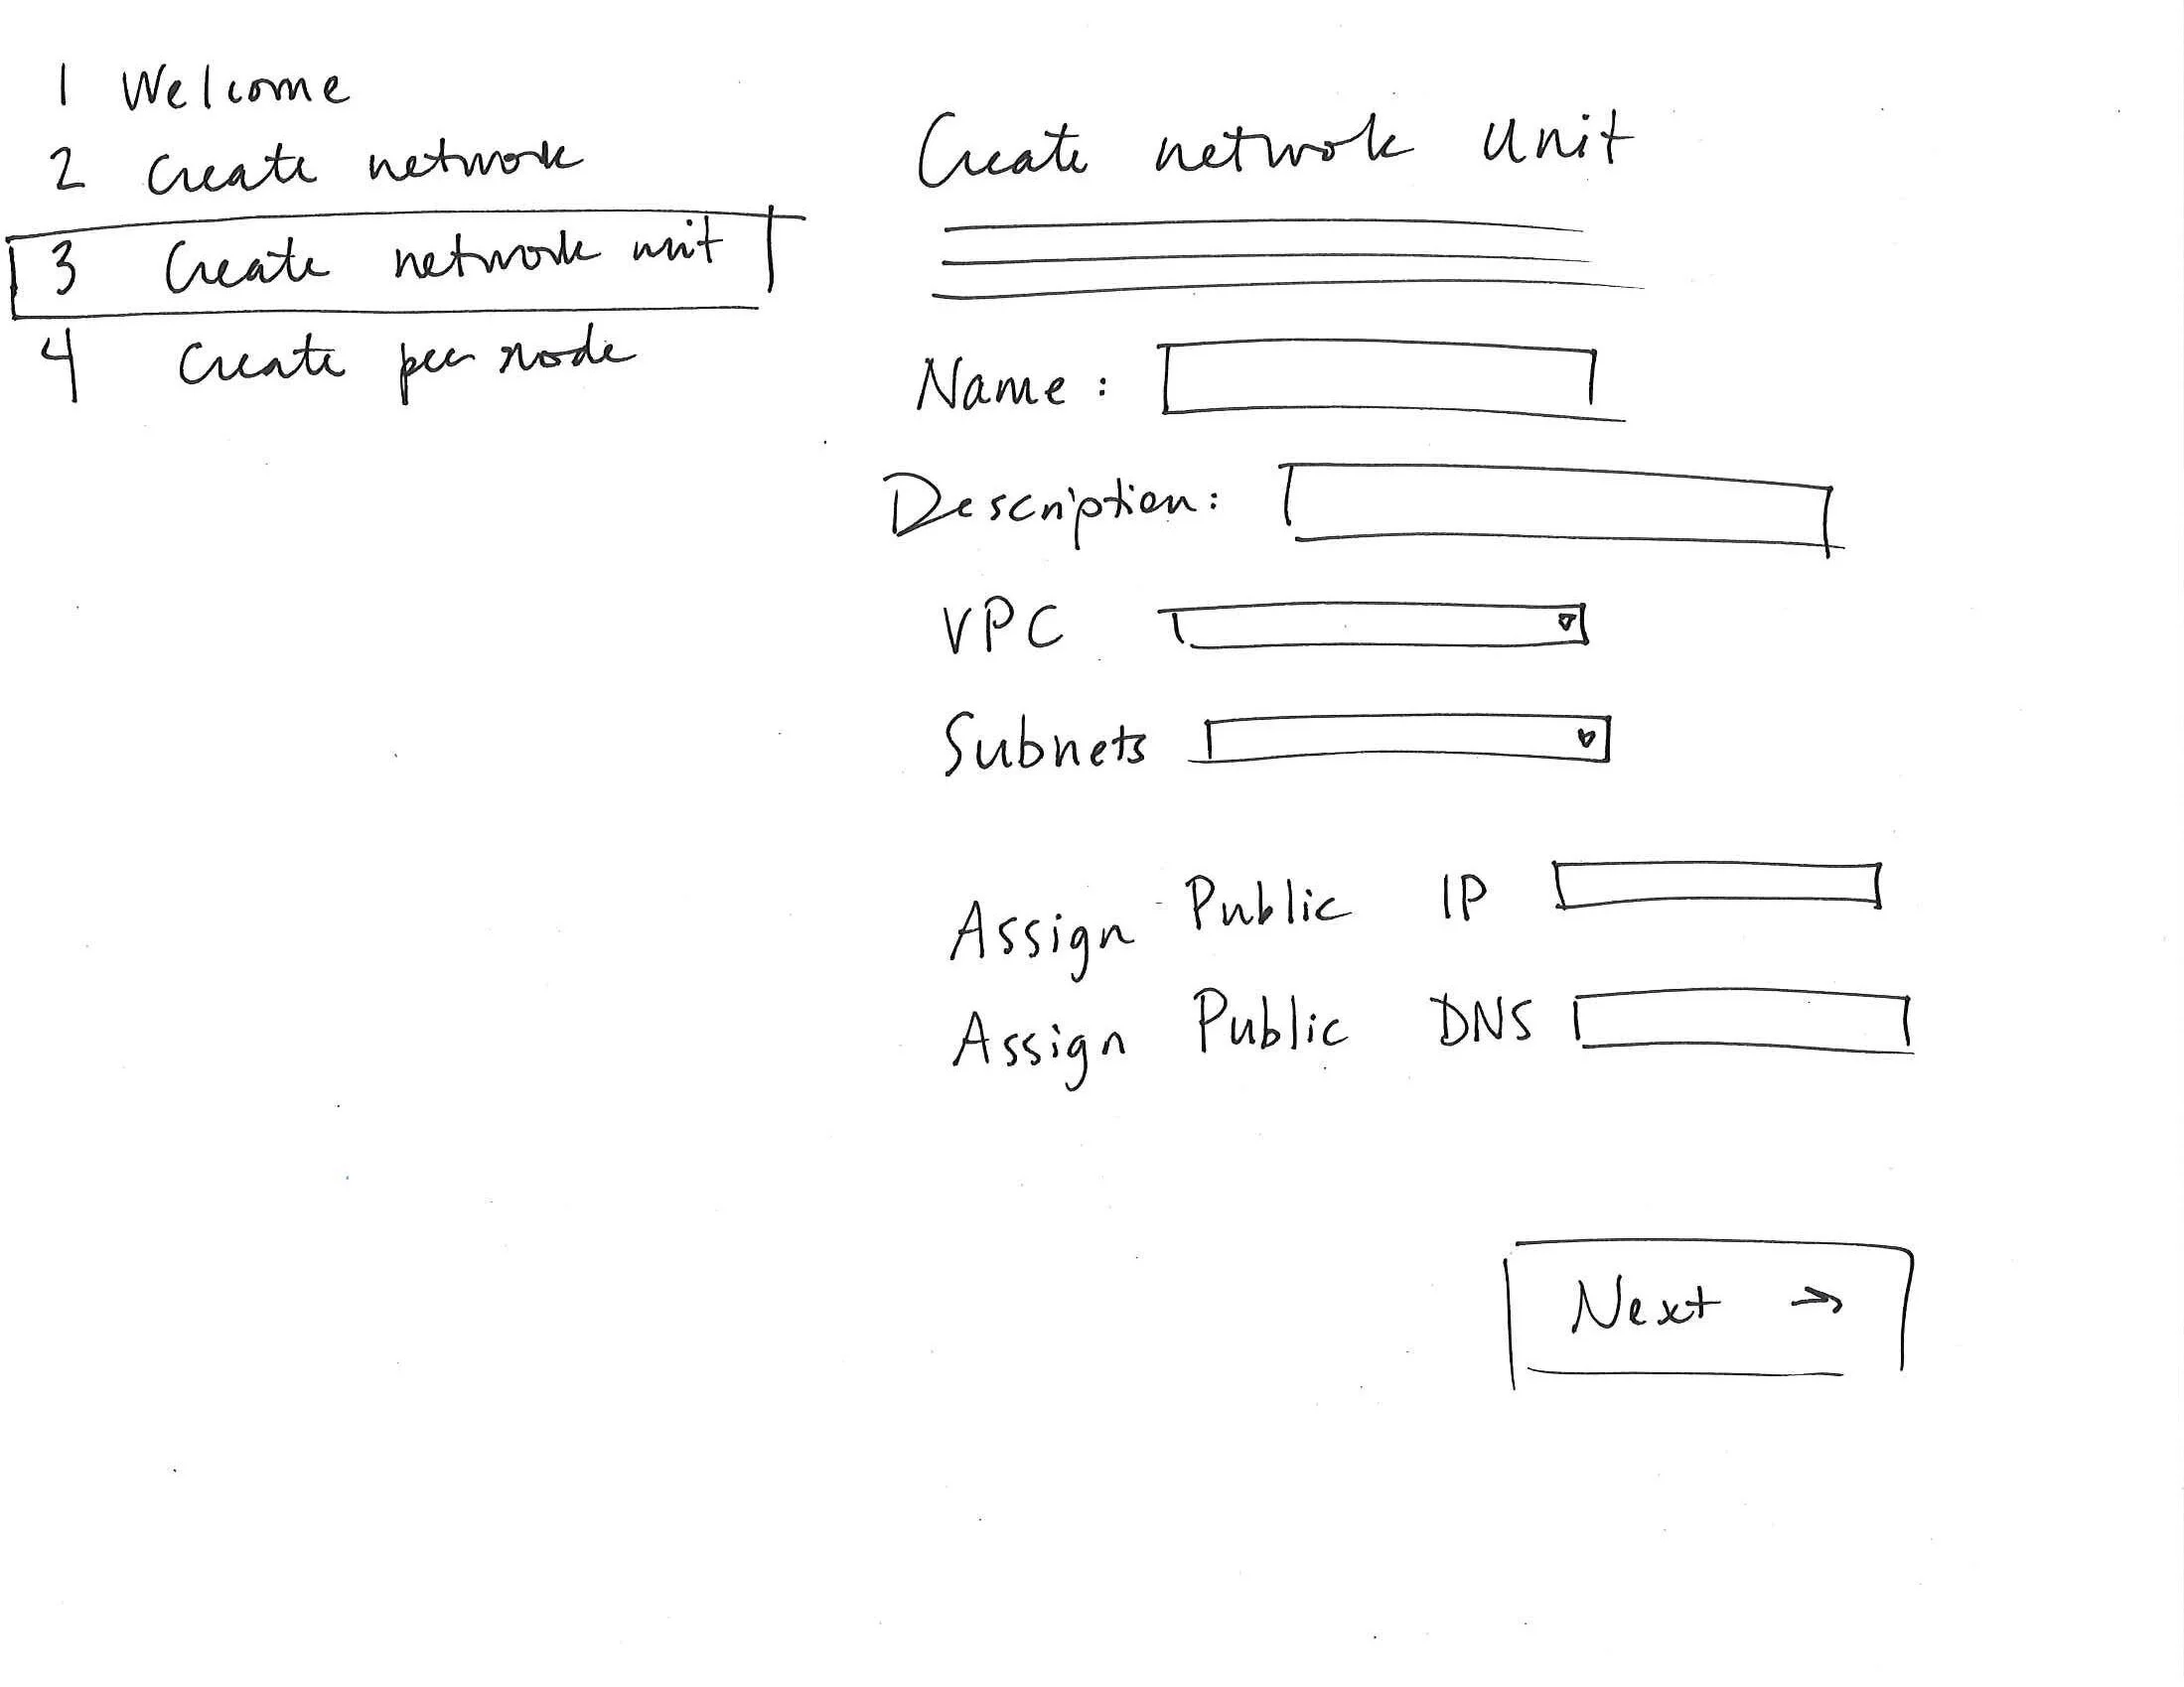 1 Welcome
2 Create network
3 Create network unit
4 Create peer node
Create network Unit
Name:
Description:
VPC
Subnets
Assign Public IP
Assign Public DNS
Next →